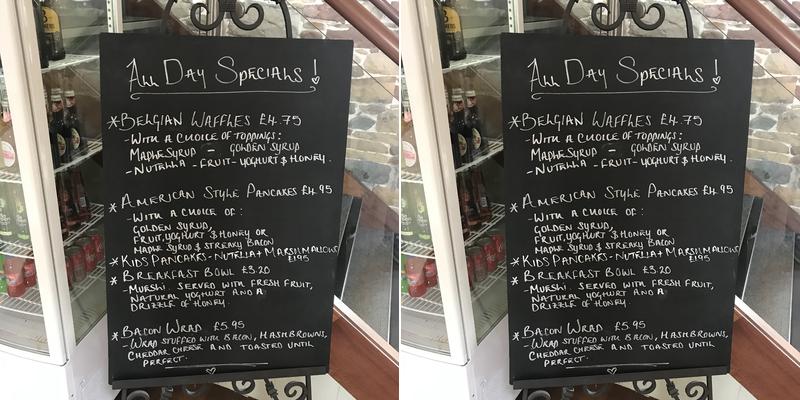 All Day Specials!
*Belgian Waffles £4.75
-With a choice of toppings:
Maple Syrup - Golden Syrup
-Nutella - Fruit - Yoghurt & Honey.
*American Style Pancakes £4.95
-With a choice of:
Golden Syrup,
Fruit, Yoghurt & Honey or
Maple Syrup & Streaky Bacon
*Kids Pancakes - Nutella + Marshmallows
£1.95
*Breakfast Bowl £3.20
-Muesli. Served with fresh fruit,
Natural Yoghurt and a
Drizzle of Honey.
*Bacon Wrap £5.95
-Wrap stuffed with Bacon, Hashbrowns,
Cheddar Cheese and toasted until
perfect.
All Day Specials!
*Belgian Waffles £4.75
-With a choice of toppings:
Maple Syrup - Golden Syrup
-Nutella - Fruit - Yoghurt & Honey.
*American Style Pancakes £4.95
-With a choice of:
Golden Syrup,
Fruit, Yoghurt & Honey or
Maple Syrup & Streaky Bacon
*Kids Pancakes - Nutella + Marshmallows
£1.95
*Breakfast Bowl £3.20
-Muesli. Served with fresh fruit,
Natural Yoghurt and a
Drizzle of Honey.
*Bacon Wrap £5.95
-Wrap stuffed with Bacon, Hashbrowns,
Cheddar Cheese and toasted until
perfect.